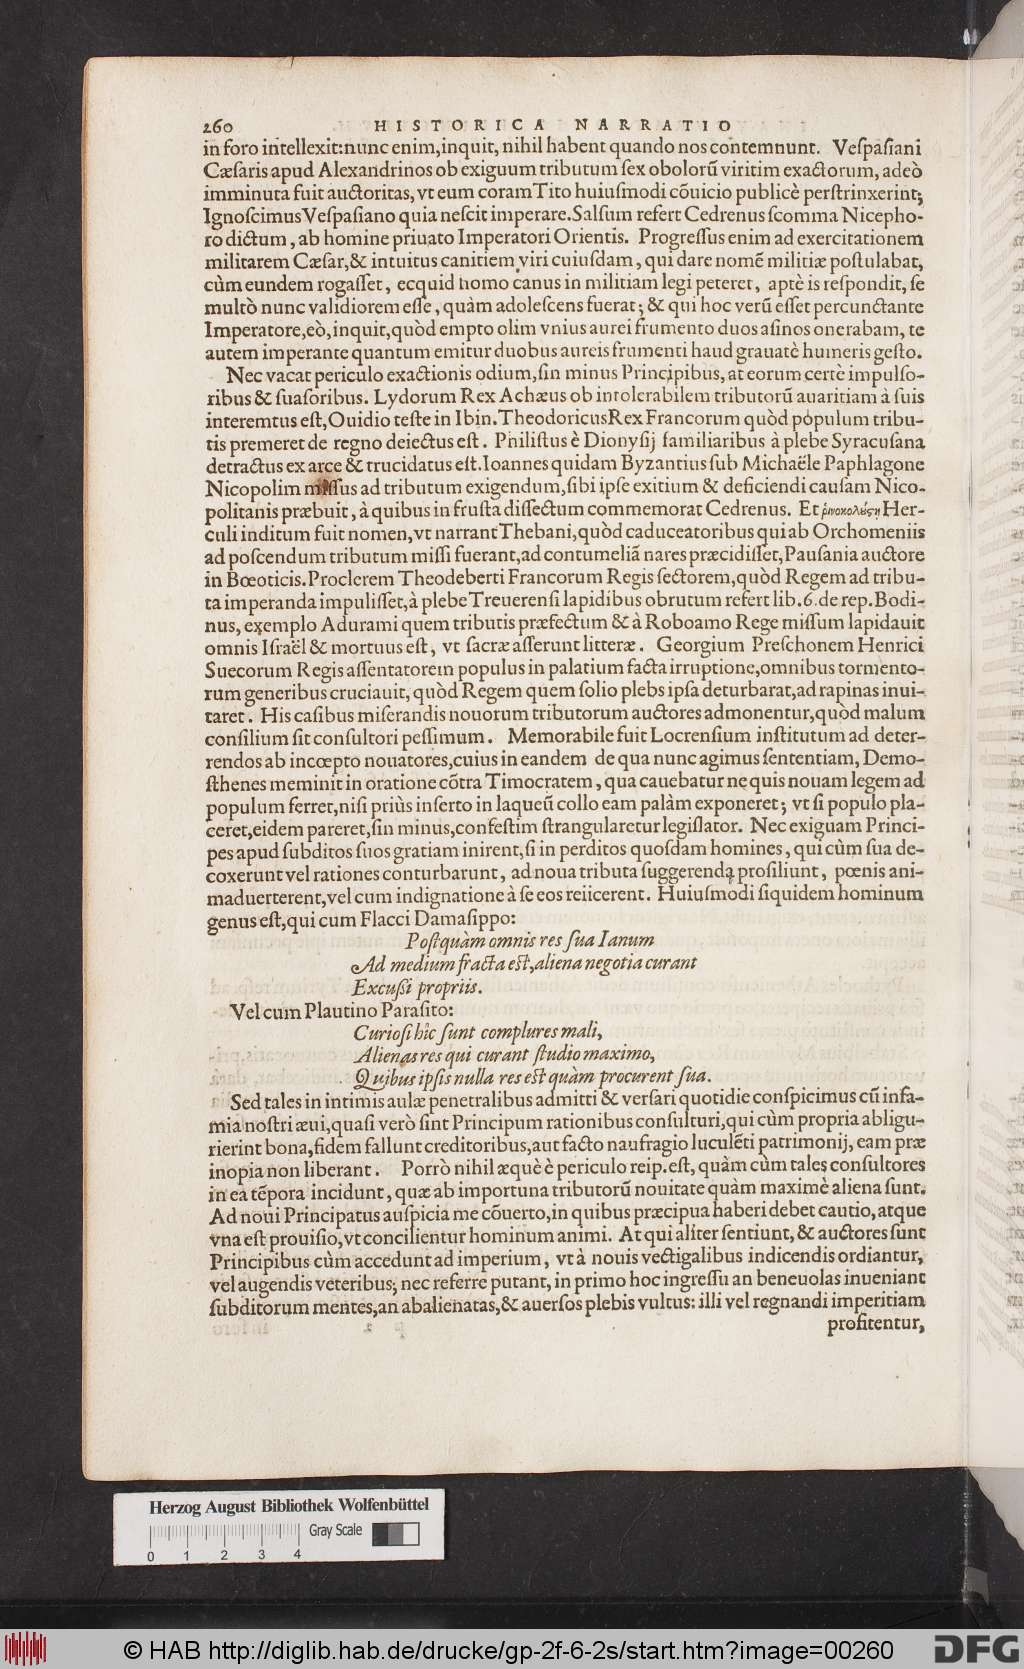 260 HISTORICA NARRATIO
in foro intellexit: nunc enim, inquit, nihil habent quando nos contemnunt. Veſpaſiani
Cæſaris apud Alexandrinos ob exiguum tributum ſex obolorũ viritim exactorum, adeò
imminuta fuit auctoritas, vt eum coram Tito huiuſmodi cõuicio publicè perſtrinxerint;
Ignoſcimus Veſpaſiano quia neſcit imperare. Salſum refert Cedrenus ſcomma Nicepho-
ro dictum, ab homine priuato Imperatori Orientis. Progreſſus enim ad exercitationem
militarem Cæſar, & intuitus canitiem viri cuiuſdam, qui dare nomẽ militiæ poſtulabat,
cùm eundem rogaſſet, ecquid homo canus in militiam legi peteret, aptè is reſpondit, ſe
multò nunc validiorem eſſe, quàm adoleſcens fuerat; & qui hoc verũ eſſet percunctante
Imperatore, eò, inquit, quòd empto olim vnius aurei frumento duos aſinos onerabam, te
autem imperante quantum emitur duobus aureis frumenti haud grauatè humeris geſto.
Nec vacat periculo exactionis odium, ſin minus Principibus, at eorum certè impulſo-
ribus & ſuaſoribus. Lydorum Rex Achæus ob intolerabilem tributorũ auaritiam à ſuis
interemtus eſt, Ouidio teſte in Ibin. Theodoricus Rex Francorum quòd populum tribu-
tis premeret de regno deiectus eſt. Philiſtus è Dionyſij familiaribus à plebe Syracuſana
detractus ex arce & trucidatus eſt. Ioannes quidam Byzantius ſub Michaële Paphlagone
Nicopolim miſſus ad tributum exigendum, ſibi ipſe exitium & deficiendi cauſam Nico-
politanis præbuit, à quibus in fruſta diſſectum commemorat Cedrenus. Et Her-
culi inditum fuit nomen, vt narrant Thebani, quòd caduceatoribus qui ab Orchomeniis
ad poſcendum tributum miſſi fuerant, ad contumeliã nares præcidiſſet, Pauſania auctore
in Bœoticis. Proclerem Theodeberti Francorum Regis ſectorem, quòd Regem ad tribu-
ta imperanda impuliſſet, à plebe Treuerenſi lapidibus obrutum refert lib. 6. de rep. Bodi-
nus, exemplo Adurami quem tributis præfectum & à Roboamo Rege miſſum lapidauit
omnis Iſraël & mortuus eſt, vt ſacræ aſſerunt litteræ. Georgium Preſchonem Henrici
Suecorum Regis aſſentatorem populus in palatium facta irruptione, omnibus tormento-
rum generibus cruciauit, quòd Regem quem ſolio plebs ipſa deturbarat, ad rapinas inui-
taret. His caſibus miſerandis nouorum tributorum auctores admonentur, quòd malum
conſilium ſit conſultori peſſimum. Memorabile fuit Locrenſium inſtitutum ad deter-
rendos ab incœpto nouatores, cuius in eandem de qua nunc agimus ſententiam, Demo-
ſthenes meminit in oratione cõtra Timocratem, qua cauebatur ne quis nouam legem ad
populum ferret, niſi priùs inſerto in laqueũ collo eam palàm exponeret; vt ſi populo pla-
ceret, eidem pareret, ſin minus, confeſtim ſtrangularetur legiſlator. Nec exiguam Princi-
pes apud ſubditos ſuos gratiam inirent, ſi in perditos quoſdam homines, qui cùm ſua de-
coxerunt vel rationes conturbarunt, ad noua tributa ſuggerenda proſiliunt, pœnis ani-
maduerterent, vel cum indignatione à ſe eos reiicerent. Huiuſmodi ſiquidem hominum
genus eſt, qui cum Flacci Damaſippo:
Poſtquàm omnis res ſua Ianum
Ad medium fracta eſt, aliena negotia curant
Excuſſi propriis.
Vel cum Plautino Paraſito:
Curioſi hîc ſunt complures mali,
Alienas res qui curant ſtudio maximo,
Quibus ipſis nulla res eſt quàm procurent ſua.
Sed tales in intimis aulæ penetralibus admitti & verſari quotidie conſpicimus cũ infa-
mia noſtri æui, quaſi verò ſint Principum rationibus conſulturi, qui cùm propria abligu-
rierint bona, fidem fallunt creditoribus, aut facto naufragio luculẽti patrimonij, eam præ
inopia non liberant. Porrò nihil æquè è periculo reip. eſt, quàm cùm tales conſultores
in ea tẽpora incidunt, quæ ab importuna tributorũ nouitate quàm maximè aliena ſunt.
Ad noui Principatus auſpicia me cõuerto, in quibus præcipua haberi debet cautio, atque
vna eſt prouiſio, vt concilientur hominum animi. At qui aliter ſentiunt, & auctores ſunt
Principibus cùm accedunt ad imperium, vt à nouis vectigalibus indicendis ordiantur,
vel augendis veteribus; nec referre putant, in primo hoc ingreſſu an beneuolas inueniant
ſubditorum mentes, an abalienatas, & auerſos plebis vultus: illi vel regnandi imperitiam
profitentur,
Herzog August Bibliothek Wolfenbüttel
Gray Scale
0 1 2 3 4
© HAB http://diglib.hab.de/drucke/gp-2f-6-2s/start.htm?image=00260
DFG